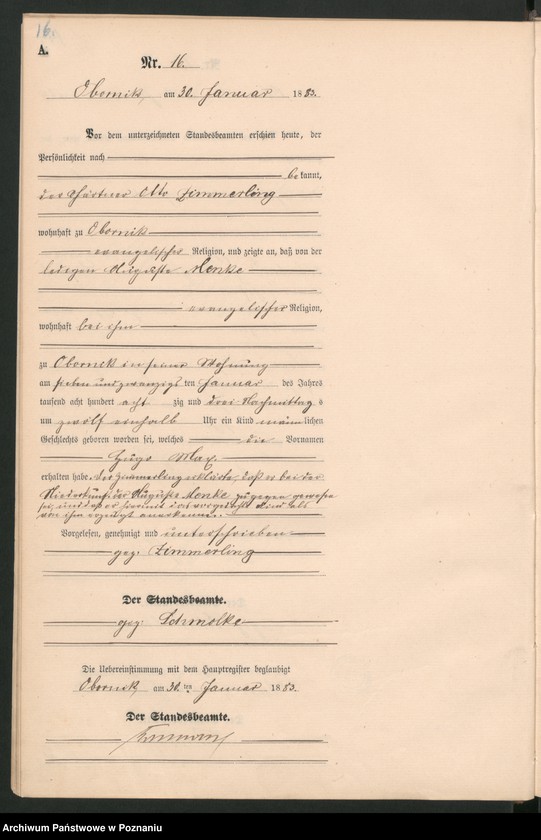 16.
A.
Nr. 16.
Obornik, am 30. Januar 1883.
Vor dem unterzeichneten Standesbeamten erschien heute, der
Persönlichkeit nach
bekannt,
der Gärtner Otto Zimmerling
wohnhaft zu Obornik
evangelischer Religion, und zeigte an, daß von der
ledigen Auguste Menke
evangelischer Religion,
wohnhaft bei ihm
zu Obornik in seiner Wohnung
am sieben und zwanzigsten Januar des Jahres
tausend acht hundert achtzig und drei Nachmittags
um zwölf einhalb Uhr ein Kind männlichen
Geschlechts geboren worden sei, welches die Vornamen
Hugo Max
erhalten habe. Der Zimmerling erklärte, daß er bei der
Niederkunft der Auguste Menke zugegen gewesen
sei, und daß er hiermit das vorgedachte Kind als
von ihm erzeugt anerkenne.
Vorgelesen, genehmigt und unterschrieben
gez. Zimmerling
Der Standesbeamte.
gez. Schmolke
Die Uebereinstimmung mit dem Hauptregister beglaubigt
Obornik, am 30. ten Januar 1883.
Der Standesbeamte.
Archiwum Państwowe w Poznaniu